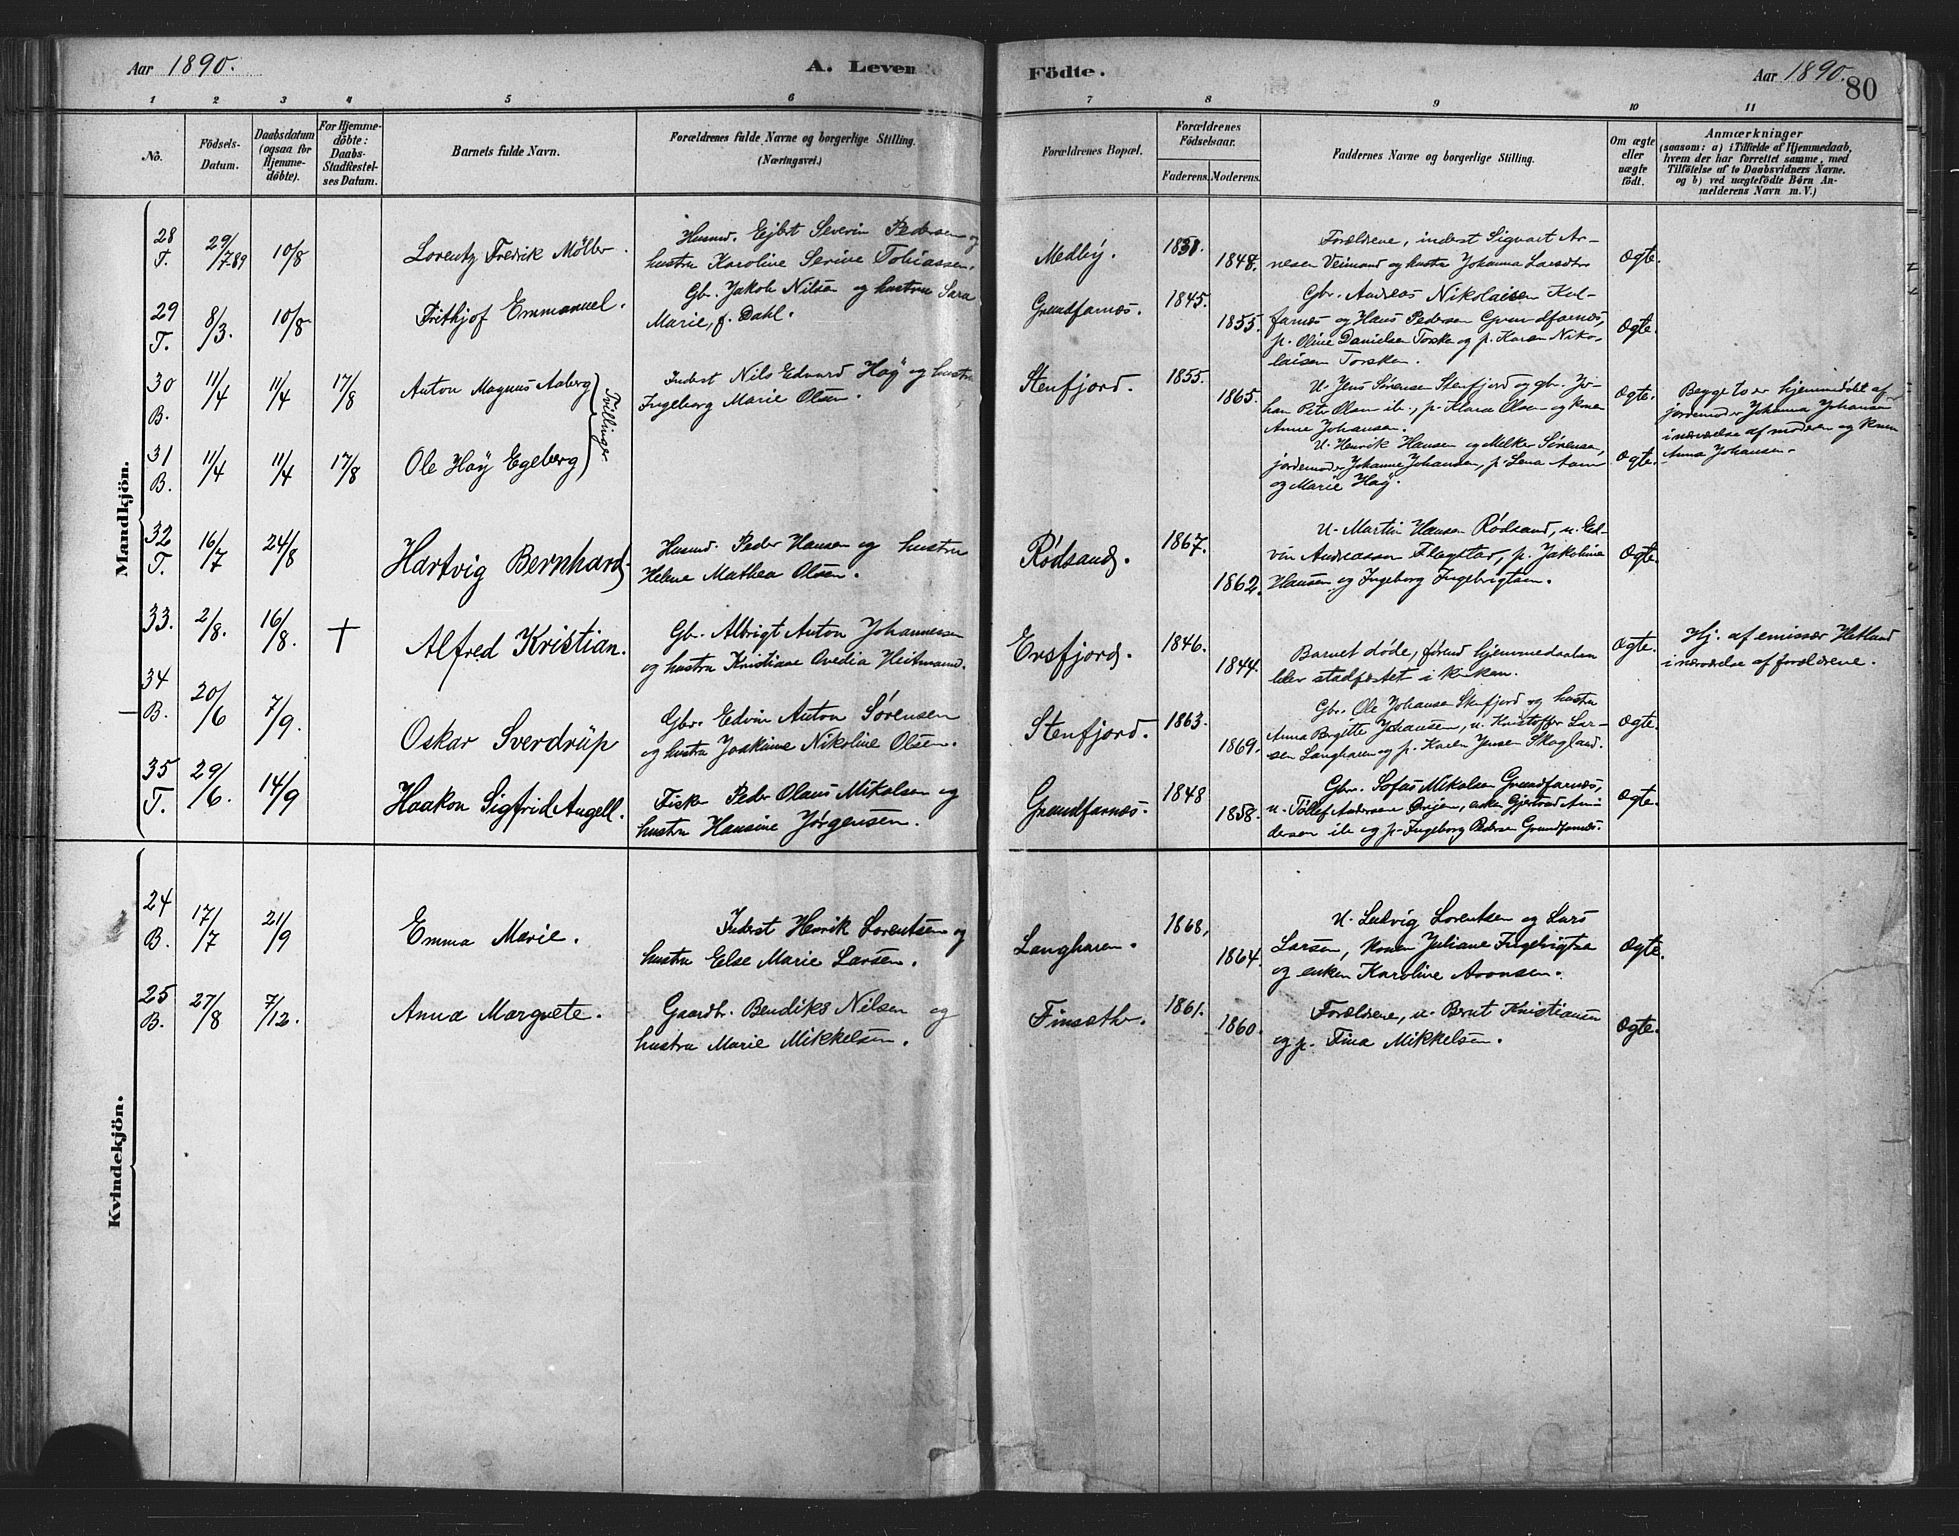 Aar 1890.
A. Leven
Födte.
Aar 1890.
80
1 2 3 4 5 6 7 8 9 10 11
No.
Födsels-
Datum.
Daabsdatum
(ogsaa for
Hjemme-
döbte).
For Hjemme-
döbte:
Daabs-
Stadfæstel-
ses Datum.
Barnets fulde Navn.
Forældrenes fulde Navne og borgerlige Stilling.
(Næringsvei.)
Forældrenes Bopæl.
Forældrenes
Födselsaar.
Faderens. Moderens.
Faddernes Navne og borgerlige Stilling.
Om ægte
eller
uægte
födt.
Anmærkninger
(saasom: a) i Tilfælde af Hjemmedaab,
hvem der har forrettet samme, med
Tilföielse af to Daabsvidners Navne.
og b) ved uægtefödte Börn An-
melderens Navn m. V.)
Mandkjön.
28
T.
29/7 89
10/8
Lorentz Fredrik Möller.
Husmd. Ejlert Severin Pedersen og
hustru Karoline Serine Tobiassen.
Medby.
1851.
1848.
Forældrene, inderst Sigvart Ar-
nesen Veimand og hustru Johanna Larsdtr.
Ægte.
29
T.
8/3.
10/8
Frithjof Emmanuel.
Gb. Jakob Nilsen og hustru Sara
Marie, f. Dahl.
Grundfarnæs.
1845.
1855.
Gbr. Andreas Nikolaisen Kal-
farnæs og Hans Pedersen Grundfarnæs,
p. Oline Danielsen Torsken og p. Karen Niko-
laisen Torsken.
Ægte.
30
B.
11/4
11/4
17/8
Anton Magnus Aaberg
Tvillinger
Inderst Nils Edvard Høy og hustru
Ingeborg Marie Olsen.
Stenfjord.
1855.
1865.
U. Jens Sørensen Stenfjord og gbr. Jo-
han Petr Olsen ib., p. Klara Olsen og konen
Anne Johansen.
Ægte.
Begge to er hjemmedøbt af
jordemoder Johanna Johansen
i nærværelse af moderen og konen
Anna Johansen.
31
B.
11/4
11/4
17/8
Ole Høy Egeberg
U. Henrik Hansen og Melker Sørensen,
jordemoder Johanne Johansen, p. Lena Aam
og Marie Høy.
Ægte.
32
T.
16/7
24/8
Hartvig Bernhard.
Husmd. Peder Hansen og hustru
Helene Mathea Olsen.
Rødsand.
1867.
1862.
U. Martin Hansen Rødsand, u. Ed-
vin Andreassen Flagstad, p. Jakobine
Hansen og Ingeborg Ingebrigtsen.
Ægte.
33.
2/8.
16/8.
†
Alfred Kristian.
Gb. Albrigt Anton Johannessen
og hustru Kristiane Ovedia Heitmand.
Ersfjord.
1846.
1844.
Barnet døde, førend hjemmedaaben
blev stadfæstet i kirken.
Ægte.
Hj. af emissær Hetland
i nærværelse af forældrene.
34
B.
20/6
7/9.
Oskar Sverdrup
Gbr. Edvin Anton Sørensen
og hustru Joakime Nikoline Olsen.
Stenfjord.
1863.
1869.
Gbr. Ole Johansen Stenfjord og hustru
Anna Birgitte Johansen, u. Kristoffer Lar-
sen Langharen og p. Karen Jensen Skogland.
Ægte.
35
T.
29/6.
14/9
Haakon Sigfrid Angell.
Fisker Peder Olaus Mikalsen og
hustru Hansine Jørgensen.
Grundfarnæs.
1848
1858.
Gbr. Sofus Mikalsen Grundfarnæs,
u. Tollef Andersen Øvrjen, enken Gjertrud An-
dersen ib. og p. Ingeborg Pedersen Grundfarnæs.
Ægte.
Kvindekjön.
24
B.
17/7
21/9
Emma Marie.
Inderst Henrik Lorentsen og
hustru Else Marie Larsen.
Langharen.
1868,
1864.
U. Ludvig Lorentsen og Lars
Larsen, konen Juliane Ingebrigtsen
og enken Karoline Aronsen.
Ægte.
25
B.
27/8
7/12.
Anna Margrete.
Gaardbr. Bendiks Nilsen og
hustru Marie Mikkelsen.
Finsæther.
1861.
1860.
Forældrene, u. Brut Kristiansen
og p. Fina Mikkelsen.
Ægte.